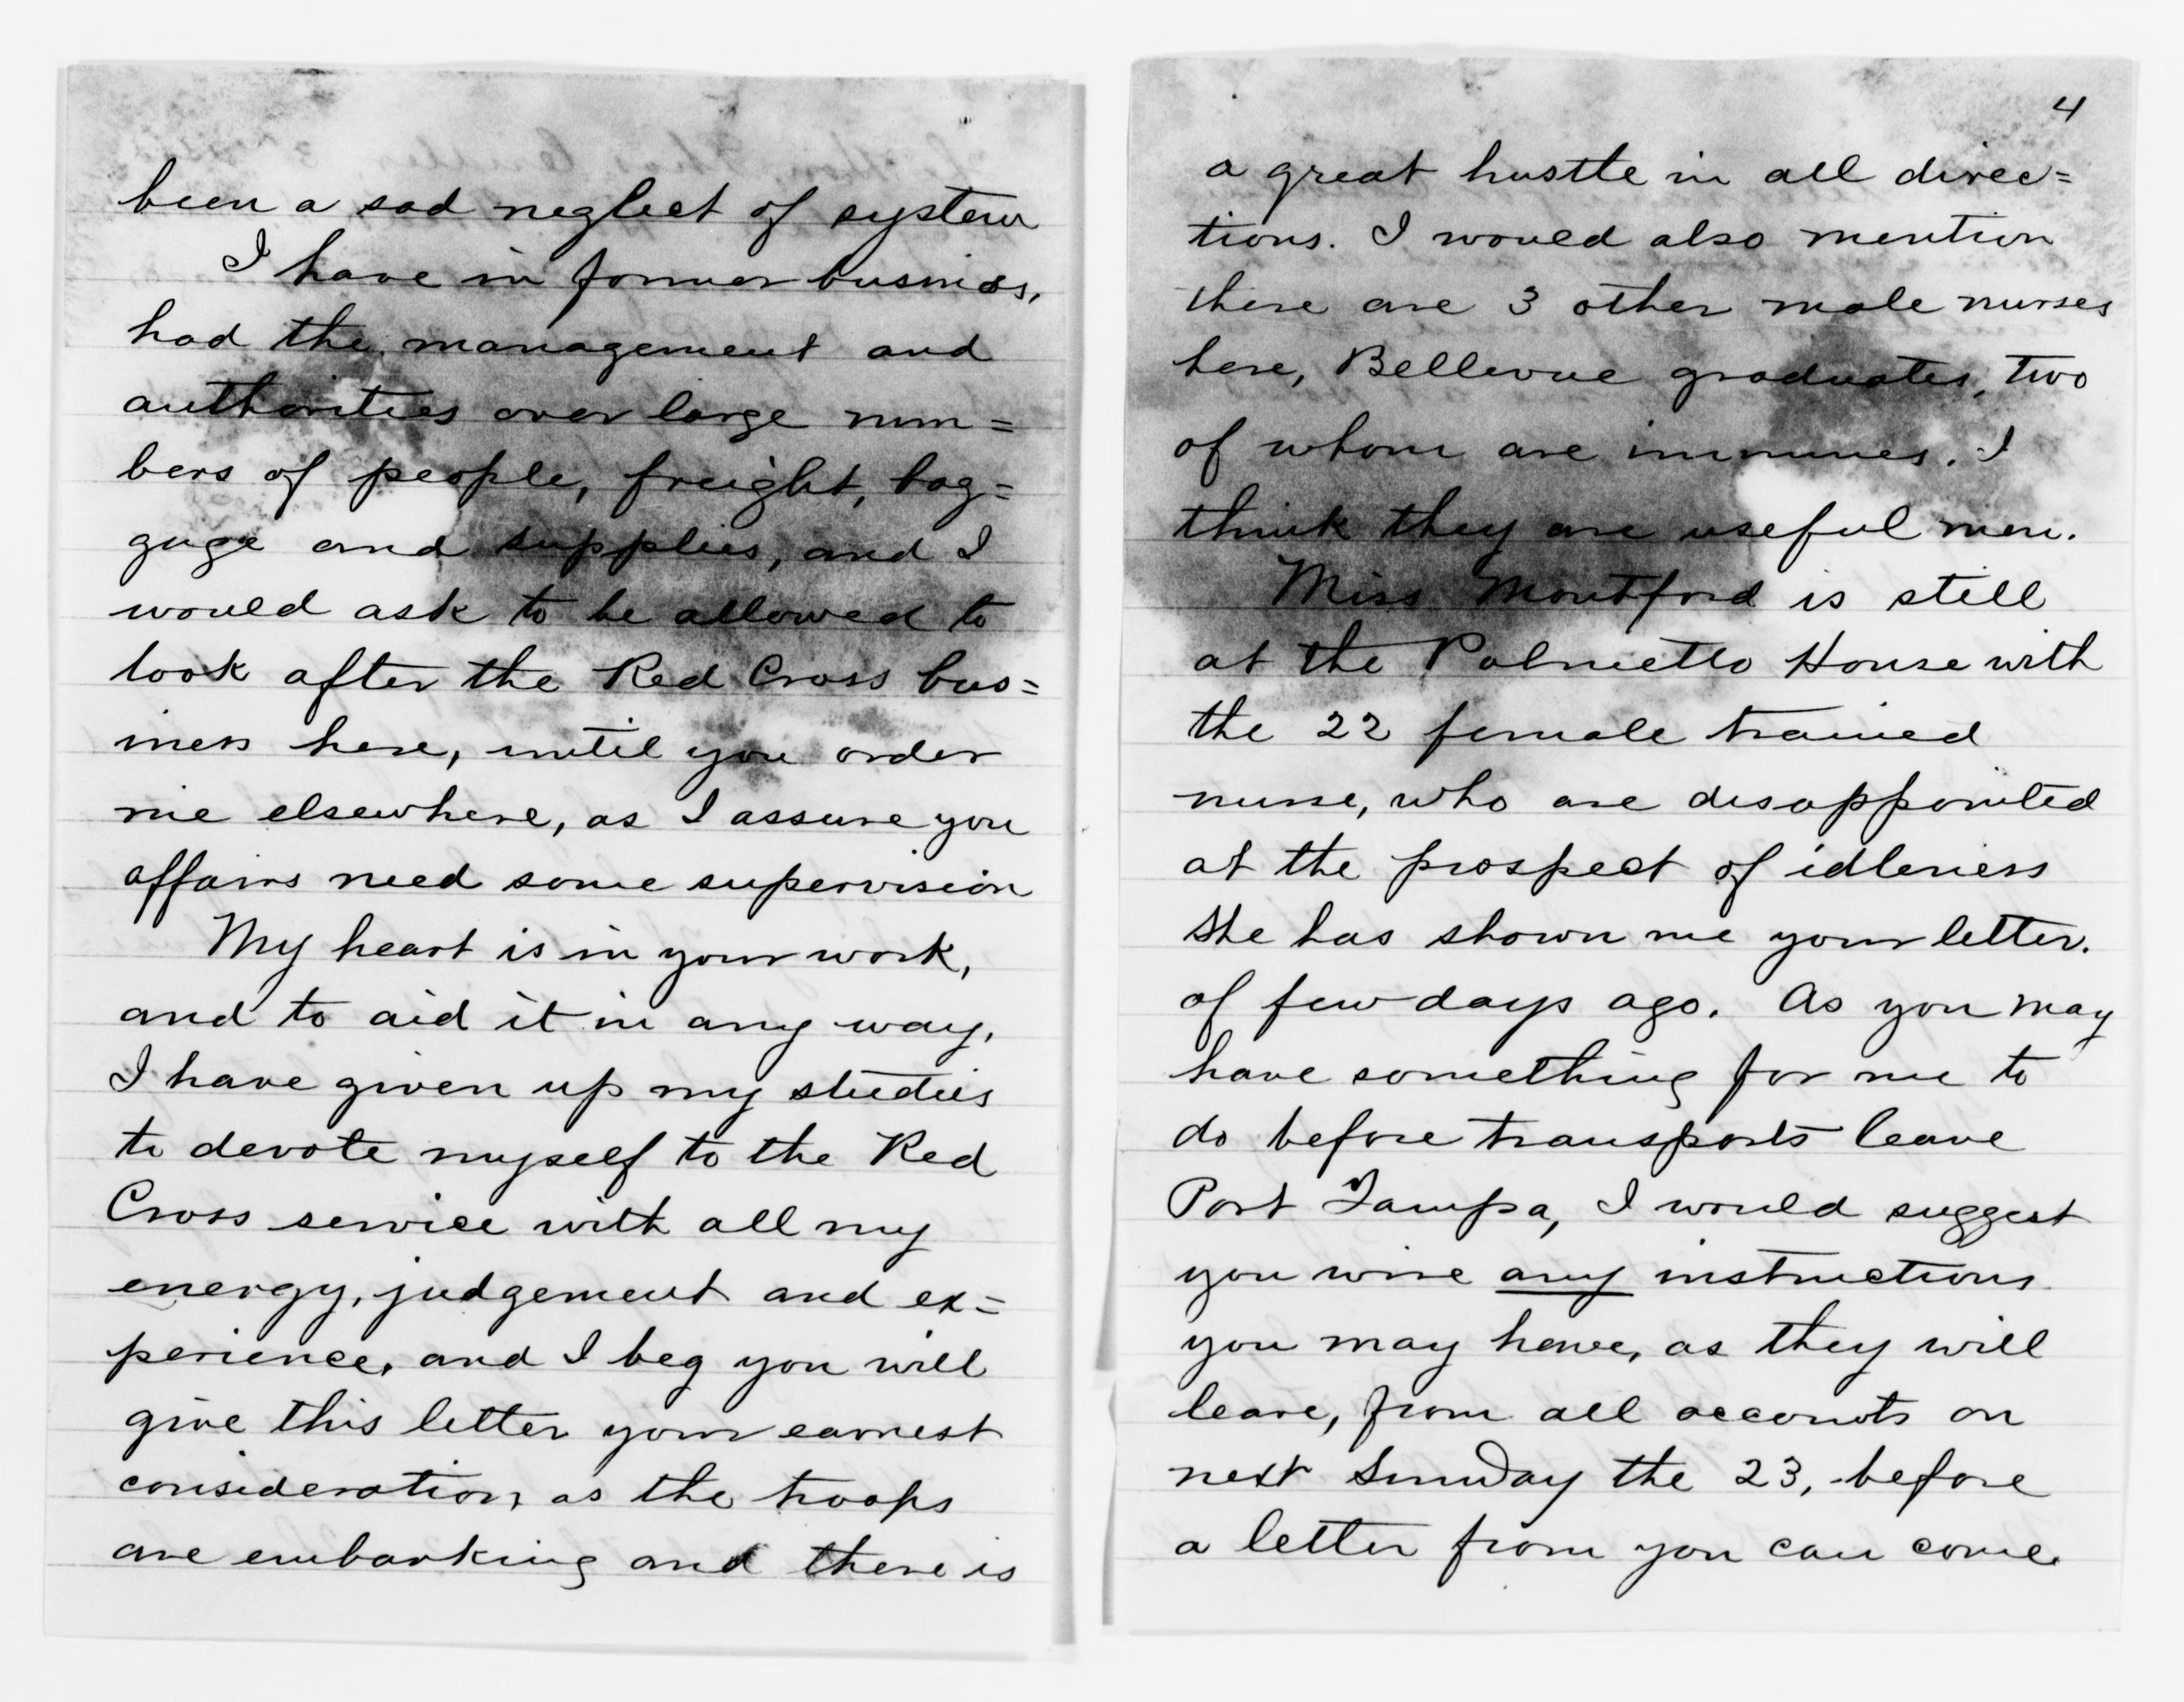 been a sad neglect of system
I have in former business,
had the management and
authorities over large num=
bers of people, freight, bag=
gage and supplies, and I
would ask to be allowed to
look after the Red Cross bus=
iness here, until you order
me elsewhere, as I assure you
affairs need some supervision
My heart is in your work,
and to aid it in any way,
I have given up my studies
to devote myself to the Red
Cross service with all my
energy, judgement and ex=
perience, and I beg you will
give this letter your earnest
consideration, as the troops
are embarking and there is
4
a great hustle in all direc=
tions. I would also mention
there are 3 other male nurses
here, Bellevue graduates, two
of whom are immunes. I
think they are useful men.
Miss Mountford is still
at the Palmetto House with
the 22 female trained
nurse, who are disappointed
at the prospect of idleness
She has shown me your letter.
of few days ago. As you may
have something for me to
do before transports leave
Port Tampa, I would suggest
you wire any instructions
you may have, as they will
leave, from all accounts on
next Sunday the 23, before
a letter from you can come.